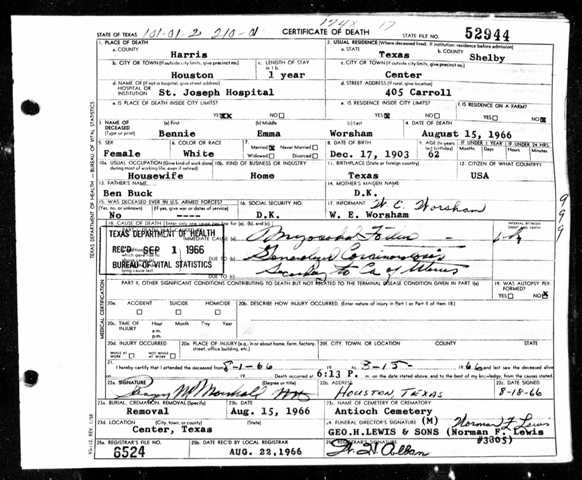 1748 17
STATE OF TEXAS 101-01-2 210-0 CERTIFICATE OF DEATH STATE FILE NO. 52944
1. PLACE OF DEATH 2. USUAL RESIDENCE (Where deceased lived. If institution: residence before admission)
a. COUNTY Harris a. STATE Texas b. COUNTY Shelby
b. CITY OR TOWN (If outside city limits, give precinct no.) Houston c. LENGTH OF STAY in 1 b. 1 year c. CITY OR TOWN (If outside city limits, give precinct no.) Center
d. NAME OF (If not in hospital, give street address) HOSPITAL OR INSTITUTION St. Joseph Hospital d. STREET ADDRESS (If rural, give location) 405 Carroll
e. IS PLACE OF DEATH INSIDE CITY LIMITS? YES XX NO e. IS RESIDENCE INSIDE CITY LIMITS? YES X NO f. IS RESIDENCE ON A FARM? YES NO X
3. NAME OF DECEASED (Type or print) (a) First Bennie (b) Middle Emma (c) Last Worsham 4. DATE OF DEATH August 15, 1966
5. SEX Female 6. COLOR OR RACE White 7. Married Never Married Widowed Divorced 8. DATE OF BIRTH Dec. 17, 1903 9. AGE (In years last birthday) 62 IF UNDER 1 YEAR Months Days IF UNDER 24 HRS. Hours Min.
10a. USUAL OCCUPATION (Give kind of work done during most of working life, even if retired) Housewife 10b. KIND OF BUSINESS OR INDUSTRY Home 11. BIRTHPLACE (State or foreign country) Texas 12. CITIZEN OF WHAT COUNTRY? USA
13. FATHER'S NAME Ben Buck 14. MOTHER'S MAIDEN NAME D.K.
15. WAS DECEASED EVER IN U.S. ARMED FORCES? (Yes, no, or unknown) No (If yes, give war or dates of service) ---- 16. SOCIAL SECURITY NO. D.K. 17. INFORMANT W C Worsham W. E. Worsham
18. CAUSE OF DEATH
IMMEDIATE CAUSE (a)
DUE TO (b)
DUE TO (c)
TEXAS DEPARTMENT OF HEALTH
REC'D SEP 1 1966
BUREAU OF VITAL STATISTICS
lying cause last
PART II. OTHER SIGNIFICANT CONDITIONS CONTRIBUTING TO DEATH BUT NOT RELATED TO THE TERMINAL DISEASE CONDITION GIVEN IN PART I(a) 19. WAS AUTOPSY PERFORMED? YES NO X
20a. ACCIDENT SUICIDE HOMICIDE 20b. DESCRIBE HOW INJURY OCCURRED. (Enter nature of injury in Part I or Part II of item 18.)
20c. TIME OF INJURY Hour a.m. p.m. Month Day Year
20d. INJURY OCCURRED WHILE AT WORK NOT WHILE AT WORK 20e. PLACE OF INJURY (e.g., in or about home, farm, factory, street, office building, etc.) 20f. CITY, TOWN, OR LOCATION COUNTY STATE
21. I hereby certify that I attended the deceased from 8-1-66 19 and last saw the deceased alive
Death occurred at 6:13 P. m. on the date stated above, and to the best of my knowledge, from the causes stated.
22a. SIGNATURE (Degree or title) 22b. ADDRESS HOUSTON, TEXAS 22c. DATE SIGNED 8-18-66
23a. BURIAL, CREMATION, REMOVAL (Specify) Removal 23b. DATE Aug. 15, 1966 23c. NAME OF CEMETERY OR CREMATORY Antioch Cemetery
23d. LOCATION (City, town, or county) (State) Center, Texas 24. FUNERAL DIRECTOR'S SIGNATURE (M) Norman F. Lewis
GEO.H.LEWIS & SONS (Norman F. Lewis #3805)
25a. REGISTRAR'S FILE NO. 6524 25b. DATE REC'D BY LOCAL REGISTRAR AUG. 22,1966 25c. REGISTRAR'S SIGNATURE
TEXAS DEPARTMENT OF HEALTH — BUREAU OF VITAL STATISTICS
MEDICAL CERTIFICATION
9 9 9